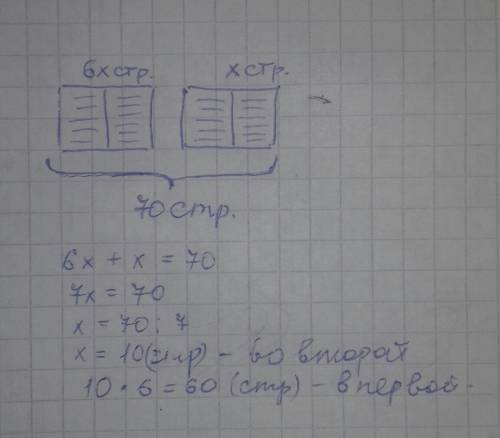 6x стр. x стр.
70 стр.
6x + x = 70
7x = 70
x = 70 : 7
x = 10 (стр) - во второй
10 · 6 = 60 (стр) - в первой.